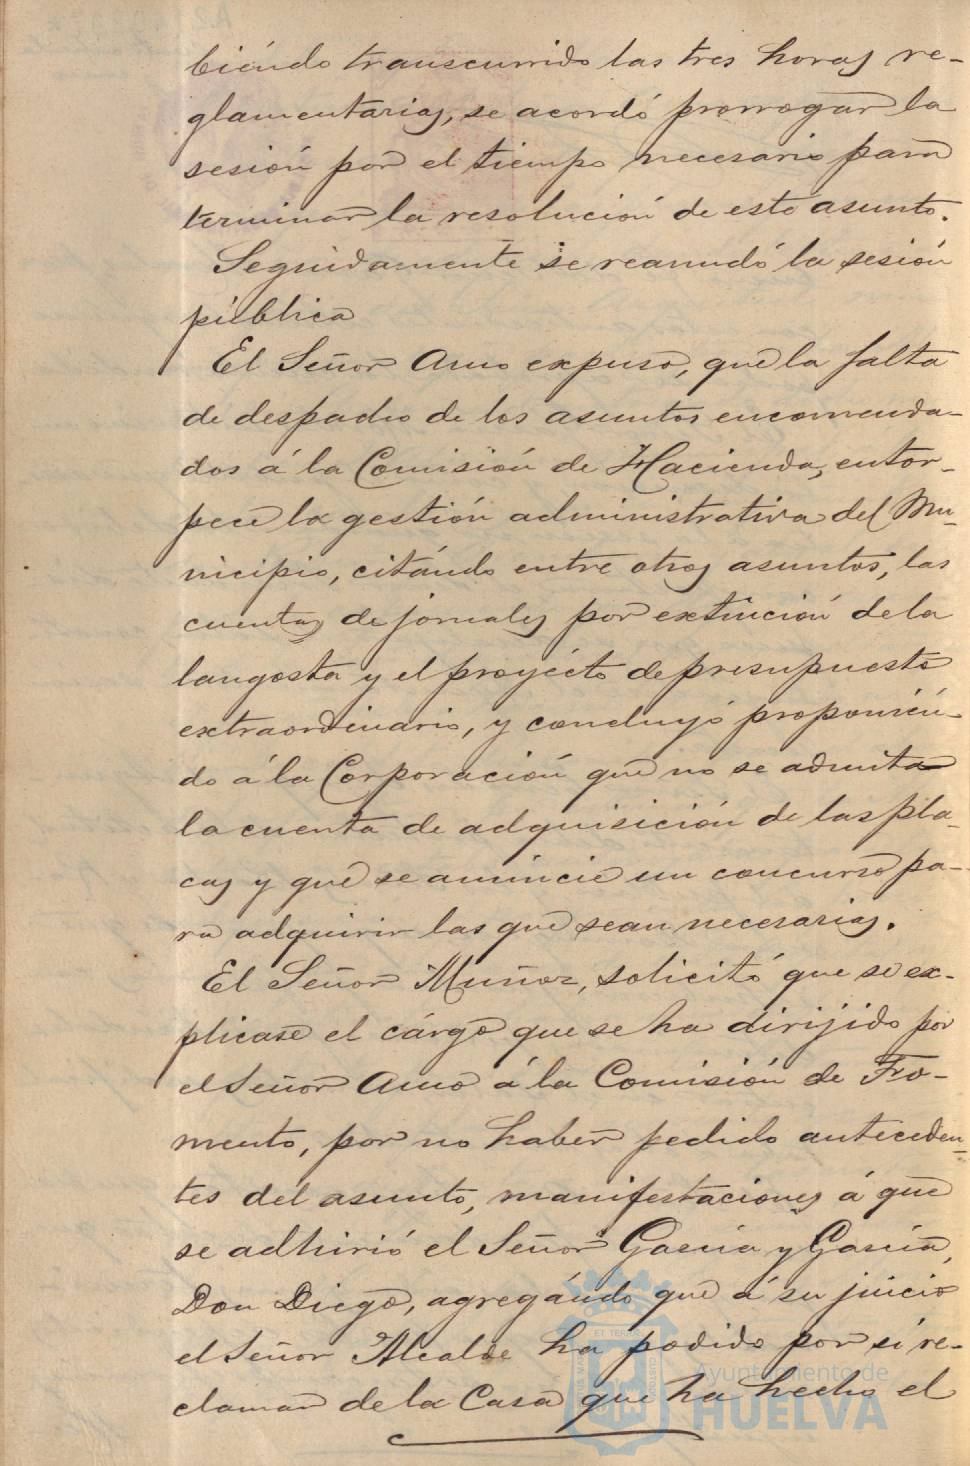 biéndo transcurrido las tres horas re-
glamentarias, se acordó prorrogar la
sesión por el tiempo necesario para
terminar la resolución de este asunto.
Seguidamente se reanudó la sesión
pública
El Señor Amo expuso, que la falta
de despacho de los asuntos encomenda-
dos á la Comisión de Hacienda, entor-
pece la gestión administrativa del Mu-
nicipio, citándo entre otros asuntos, las
cuentas de jornales por extinción de la
langosta y el proyécto de presupuesto
extraordinario, y concluyó proponién-
do á la Corporación que no se admita
la cuenta de adquisición de las pla-
cas y que se anúncie un concurso pa-
ra adquirir las que sean necesarias.
El Señor Muñoz, solicitó que se ex-
plicase el cárgo que se ha dirijido por
el Señor Amo á la Comisión de Fo-
mento, por no haber pedido anteceden-
tes del asunto, manifestaciones á que
se adhirió el Señor García y García,
Don Diego, agregándo que á su juicio
el Señor Alcalde ha podido por sí re-
clamar de la Casa que ha hecho el
Ayuntamiento de
HUELVA